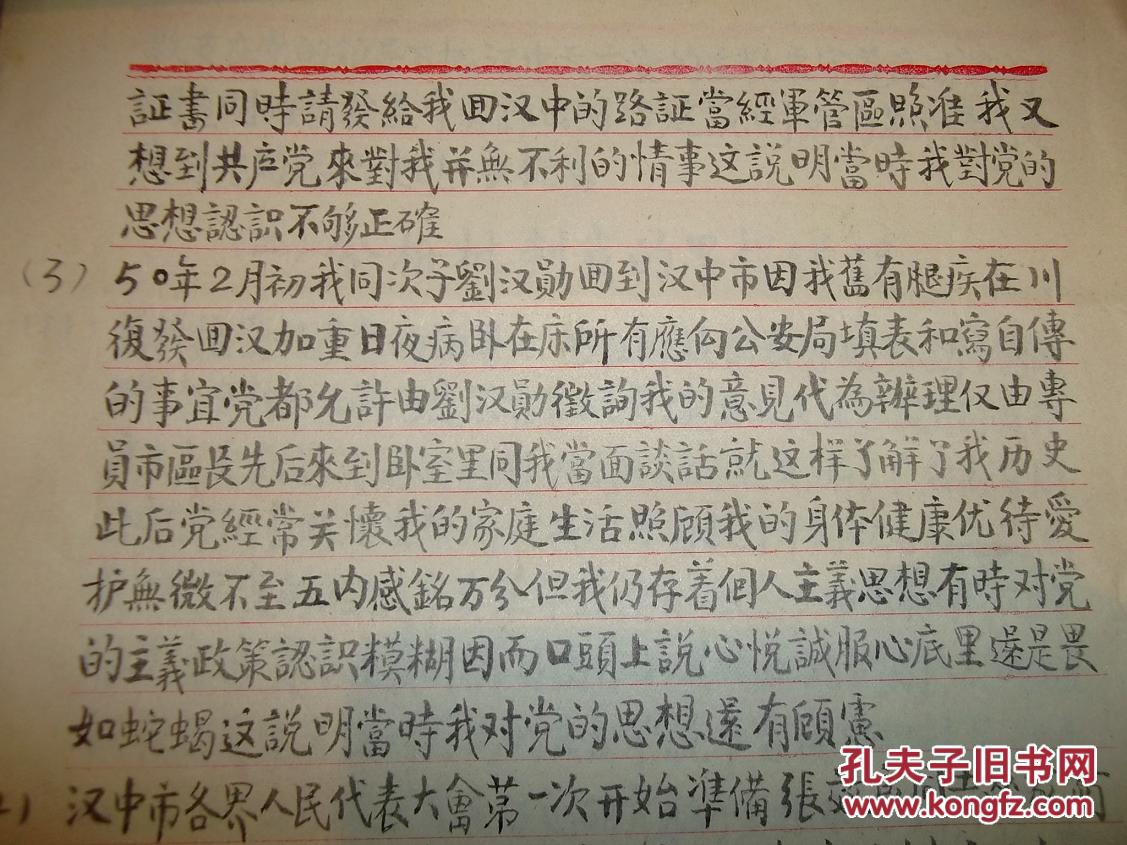 証書同時請發給我回汉中的路証當經軍管區照准我又
想到共产党來對我并無不利的情事这説明當時我對党的
思想認識不够正確
(3) 50年2月初我同次子劉汉勛回到汉中市因我舊有腿疾在川
復發回汉加重日夜病卧在床所有應向公安局填表和寫自傳
的事宜党都允許由劉汉勛徵詢我的意見代為辦理仅由專
員市區長先后來到卧室里同我當面談話就这样了解了我历史
此后党經常关懷我的家庭生活照顾我的身体健康优待愛
护無微不至五内感銘万分但我仍存着個人主義思想有時对党
的主義政策認識糢糊因而口頭上説心悦誠服心底里還是畏
如蛇蝎这説明當時我对党的思想還有顧慮
汉中市各界人民代表大會第一次开始準備張
孔夫子旧书网
www.kongfz.com